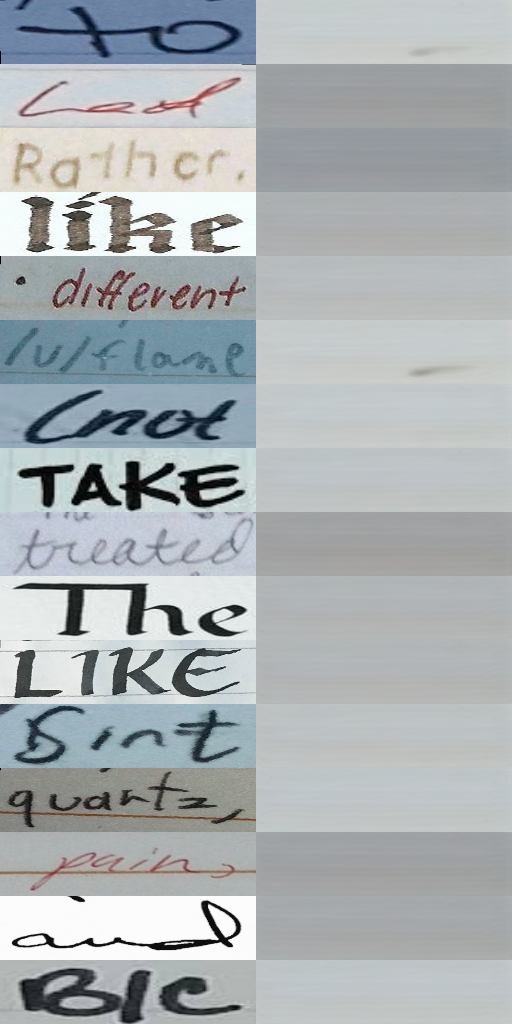 to
Lead
Rather.
like
• different
/v/flame
(not
TAKE
treated
The
LIKE
quartz,
pain,
and
B/C